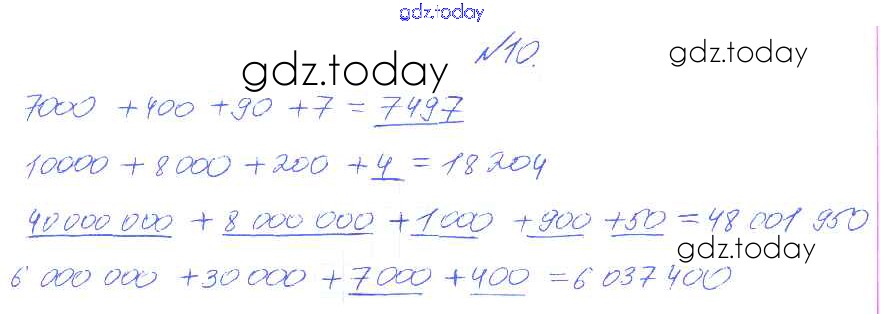 gdz.today
№10.
gdz.today
gdz.today
7000 + 400 + 90 + 7 = 7497
10000 + 8 000 + 200 + 4 = 18 204
40 000 000 + 8 000 000 + 1 000 + 900 + 50 = 48 001 950
gdz.today
6 000 000 + 30 000 + 7 000 + 400 = 6 037 400